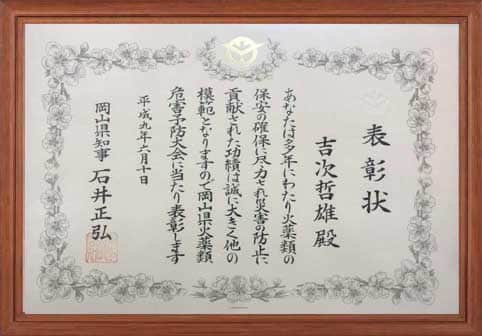 表彰状
吉次哲雄殿
あなたは多年にわたり火薬類の
保安の確保に尽力され災害の防止に
貢献された功績は誠に大きく他の
模範となりますので岡山県火薬類
危害予防大会に当たり表彰します
平成九年六月十日
岡山県知事 石井正弘